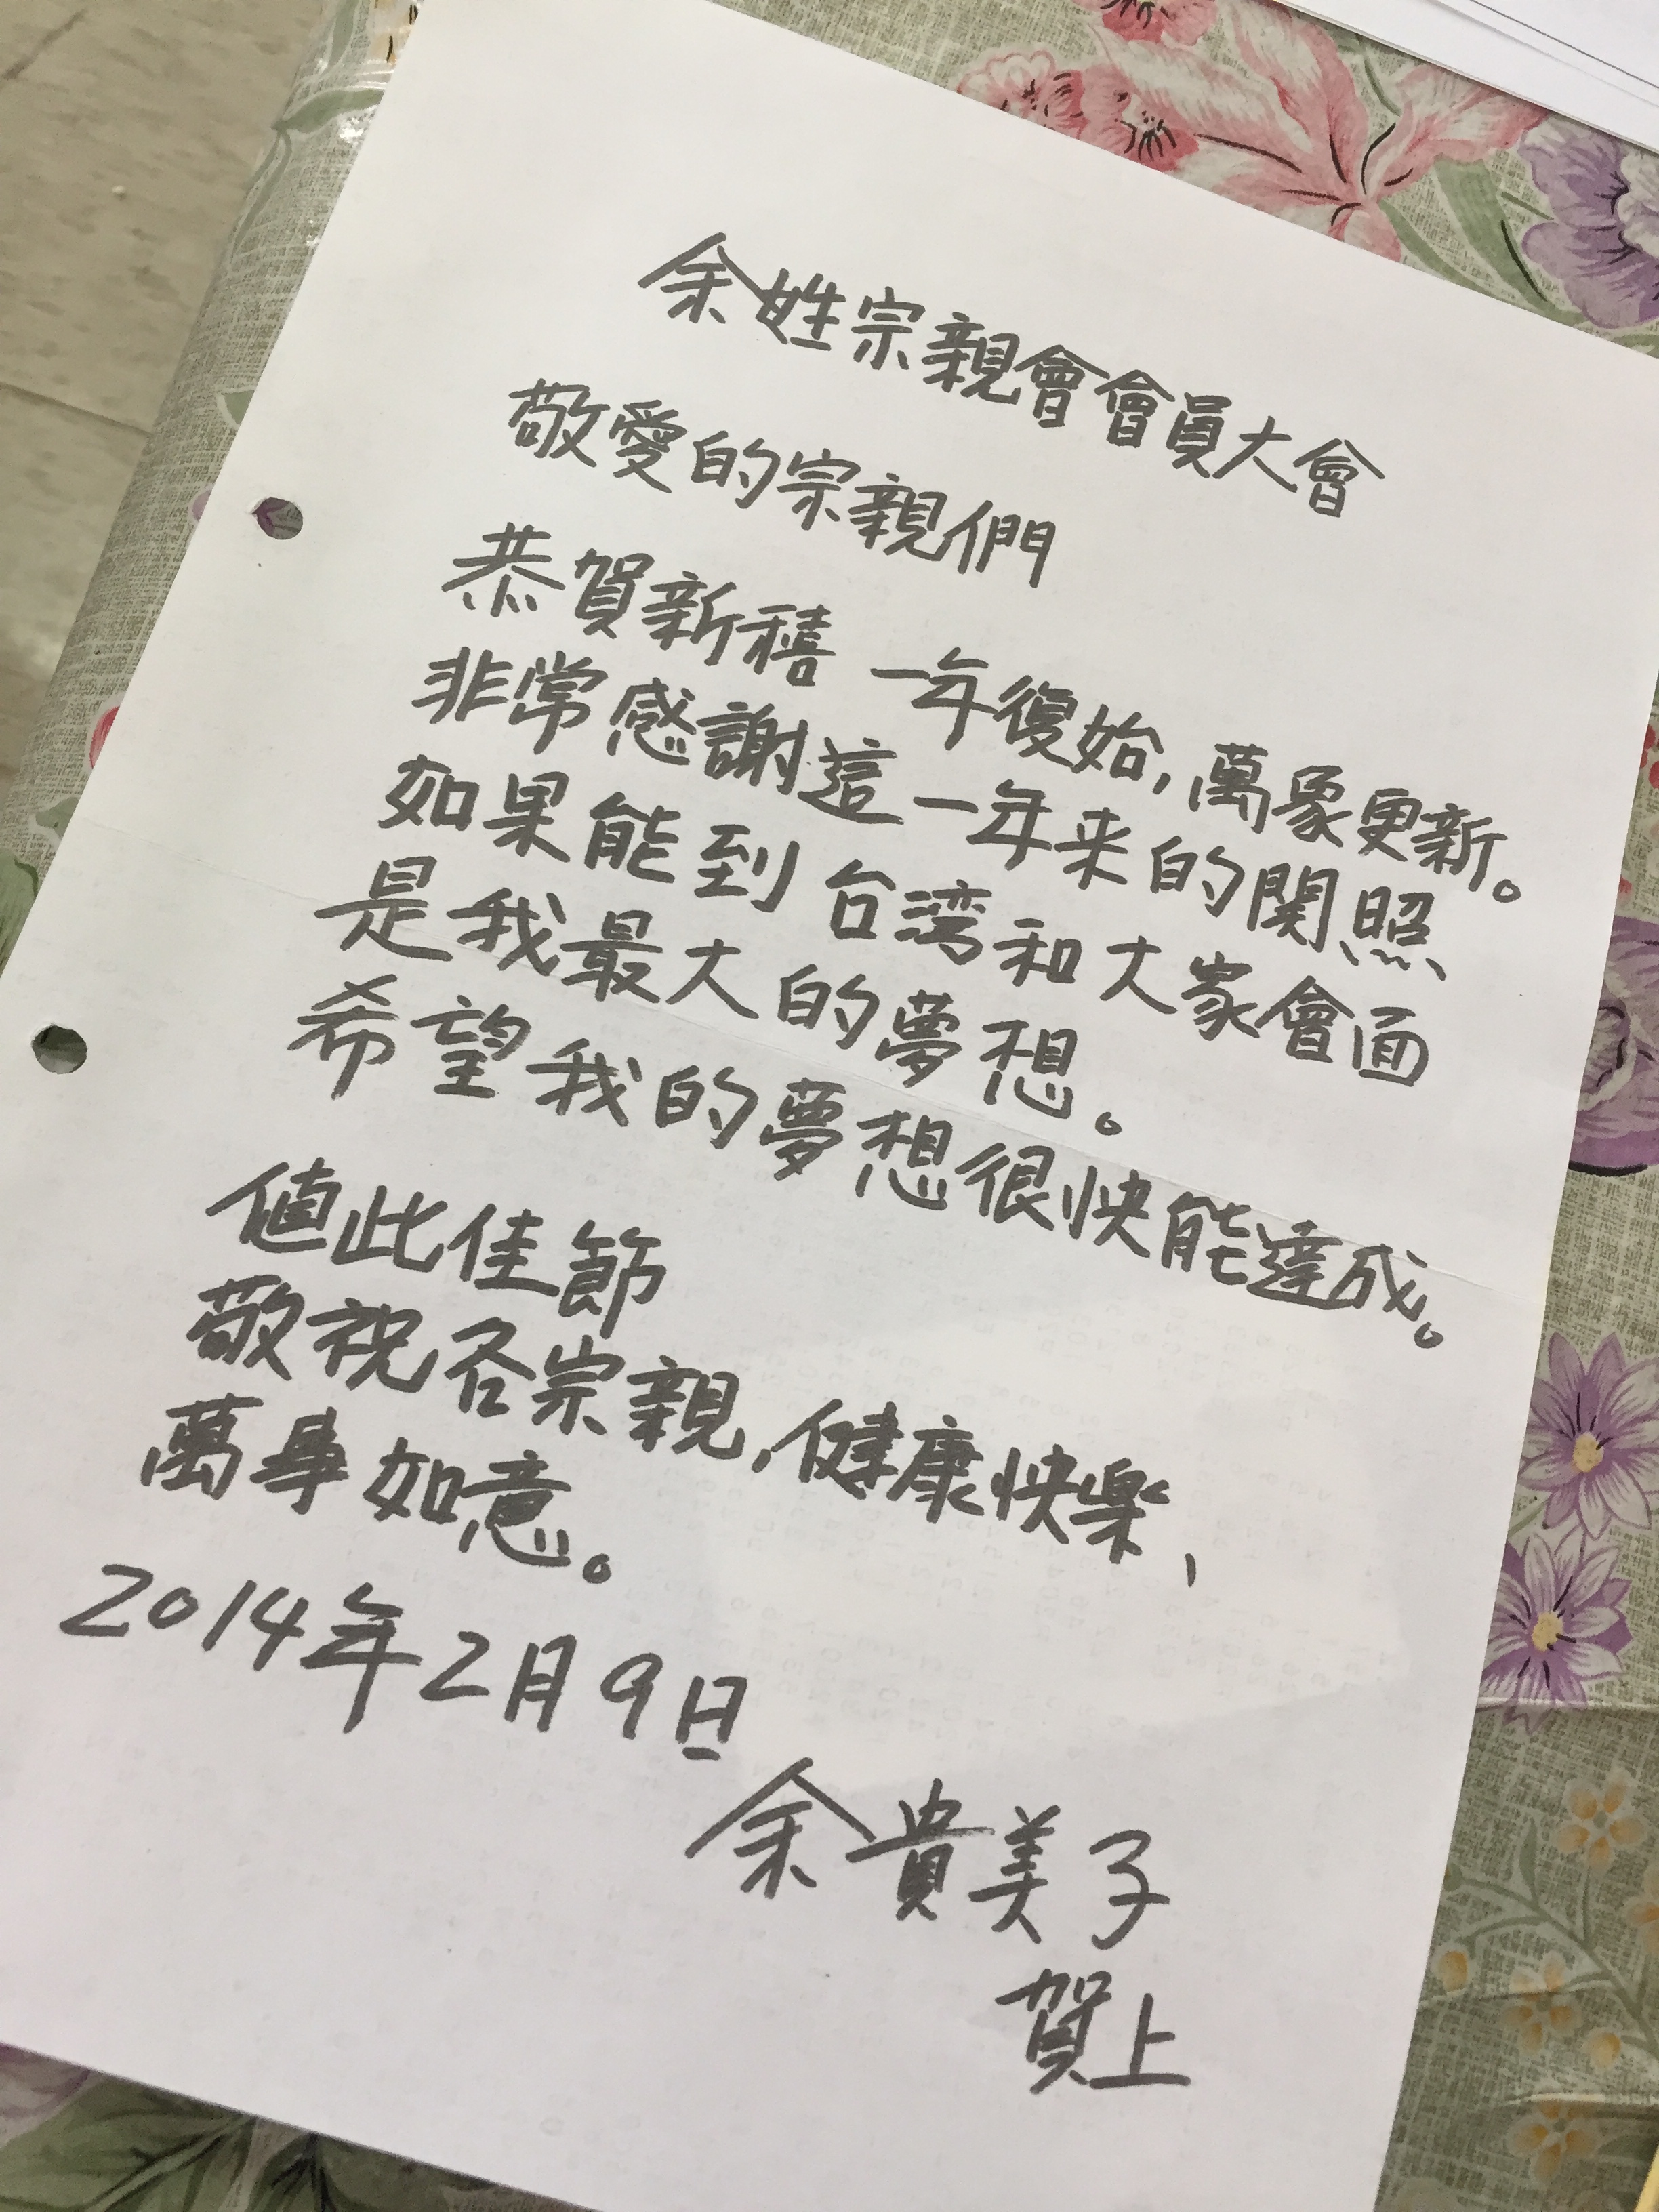 余姓宗親會會員大會
敬愛的宗親們
恭賀新禧 一年復始,萬象更新。
非常感謝這一年来的関照
如果能到台湾和大家會面
是我最大的夢想。
希望我的夢想很快能達成。
值此佳節
敬祝各宗親,健康快樂、
萬事如意。
2014年2月9日
余貴美子
賀上